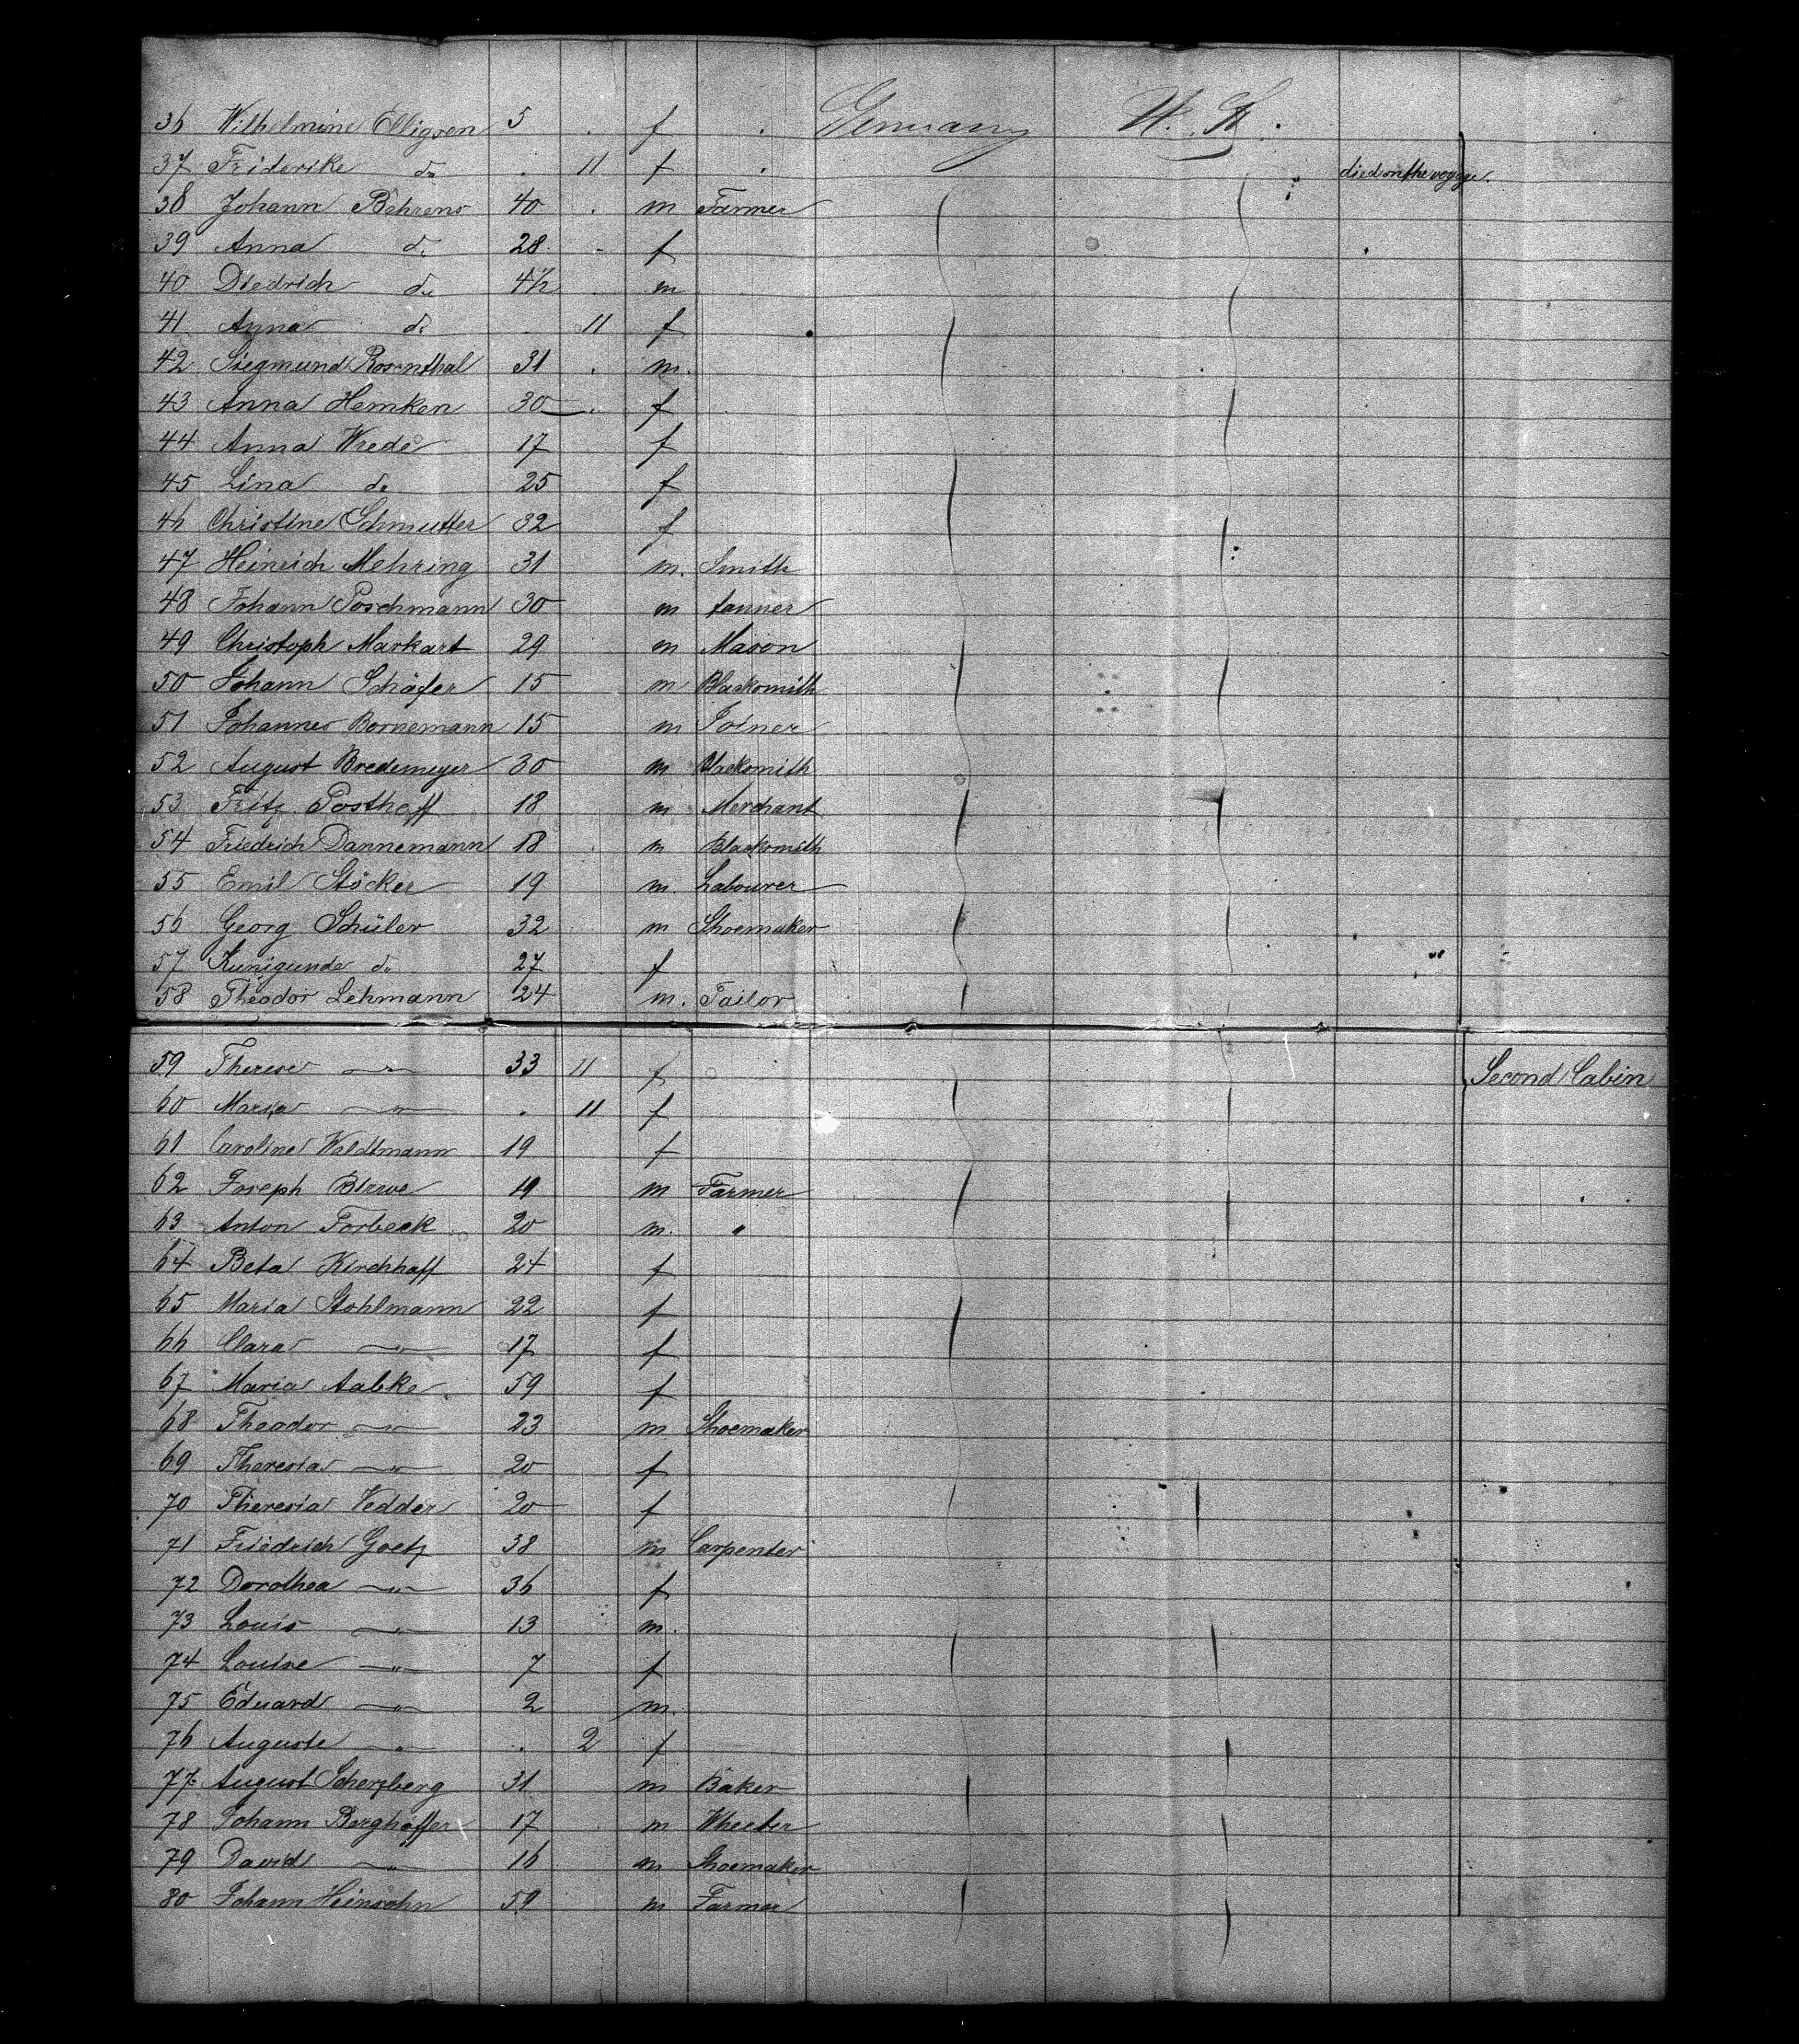 36 Wilhelmine Elligsen 5 . f . Germany U. St.
37 Friderike do . 11 f . died on the voyage.
38 Johann Behrens 40 . m Farmer
39 Anna do 28 - f
40 Diedrich do 4½ . m
41 Anna do . 11 f
42 Siegmund Rosenthal 31 . m.
43 Anna Hemken 30 . f
44 Anna Wrede 17 f
45 Lina do 25 f
46 Christine Schmutter 32 f
47 Heinrich Mehring 31 m. Smith
48 Johann Poschmann 30 m tanner
49 Christoph Markart 29 m Mason
50 Johann Schäfer 15 m Blacksmith
51 Johannes Bornemann 15 m Joiner
52 August Bredemeyer 30 m Blacksmith
53 Fritz Posthoff 18 m Merchant
54 Friedrich Dannemann 18 m Blacksmith
55 Emil Stöcker 19 m. Labourer
56 Georg Schüler 32 m Shoemaker
57 Kunigunde do 27 f
58 Theodor Lehmann 24 m. Tailor
59 Therese " 33 11 f Second Cabin
60 Maria " . 11 f
61 Caroline Waldtmann 19 f
62 Joseph 19 m Farmer
63 Anton Torbeck 20 m. "
64 Beta Kirchhoff 24 f
65 Maria Stohlmann 22 f
66 Clara " 17 f
67 Maria Aabke 59 f
68 Theodor " 23 m Shoemaker
69 Theresia " 20 f
70 Theresia Vedder 20 f
71 Friedrich Goetz 38 m Carpenter
72 Dorothea " 36 f
73 Louis " 13 m.
74 Louise " 7 f
75 Eduard " 2 m.
76 Auguste " . 2 f
77 August Scherzberg 31 m Baker
78 Johann Berghöffer 17 m Wheeler
79 David " 16 m Shoemaker
80 Johann Heinsohn 59 m Farmer